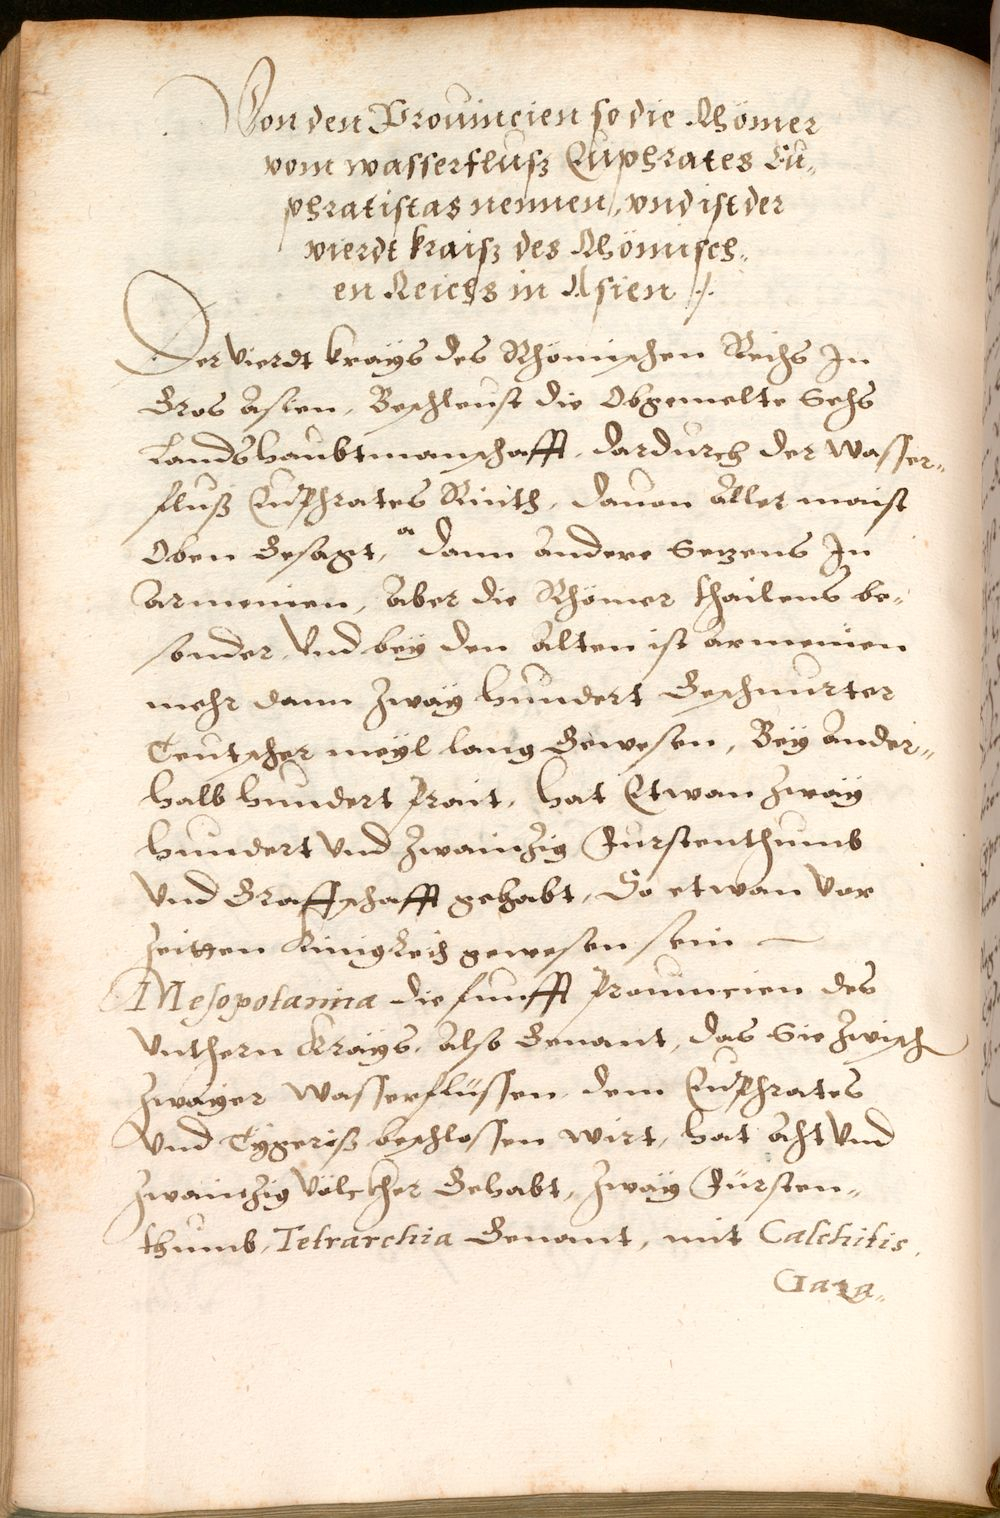 Von den Prouincien so die Rhömer
vom wasserfluß Euphrates Eu-
phratistas nennen, vnd ist der
vierdt kraiß des Rhömisch-
en Reichs in Asien /.
Der Vierdt krays des Rhömischen Reichs In
Gros Asien, Beschleust die Obgemelte Sechs
Landshaubtmanschafft, dardurch der Wasser-
fluß Euphrates Rinth, dauon aller maist
Oben Gesagt, a dann andere Sezens In
Armenien, Aber die Rhömer thailens be-
sonder, Vnd bey den Alten ist Armenien
mehr dann Zway hundert Geschnurter
Teutscher meyl lang Gewesen, Bey Ander-
halb hundert Prait, hat Etwan Zway
hundert Vnd Zwainzig Furstenthumb
Vnd Graffschafft gehabt, So etwan Vor
Zeitten Kinigkreich gewesen sein
Mesopotamia die funfft Prouincien des
Vnthern Krays, Also Genant, das Sie Zwisch
Zwayer Wasserflüssen, dem Euphrates
Vnd Tygeriß beschlossen Wirt, hat Acht Vnd
Zwainzig Völckher Gehabt, Zway Fürsten-
thumb, Tetrarchia Genant, mit Calchitis,
Gaza-